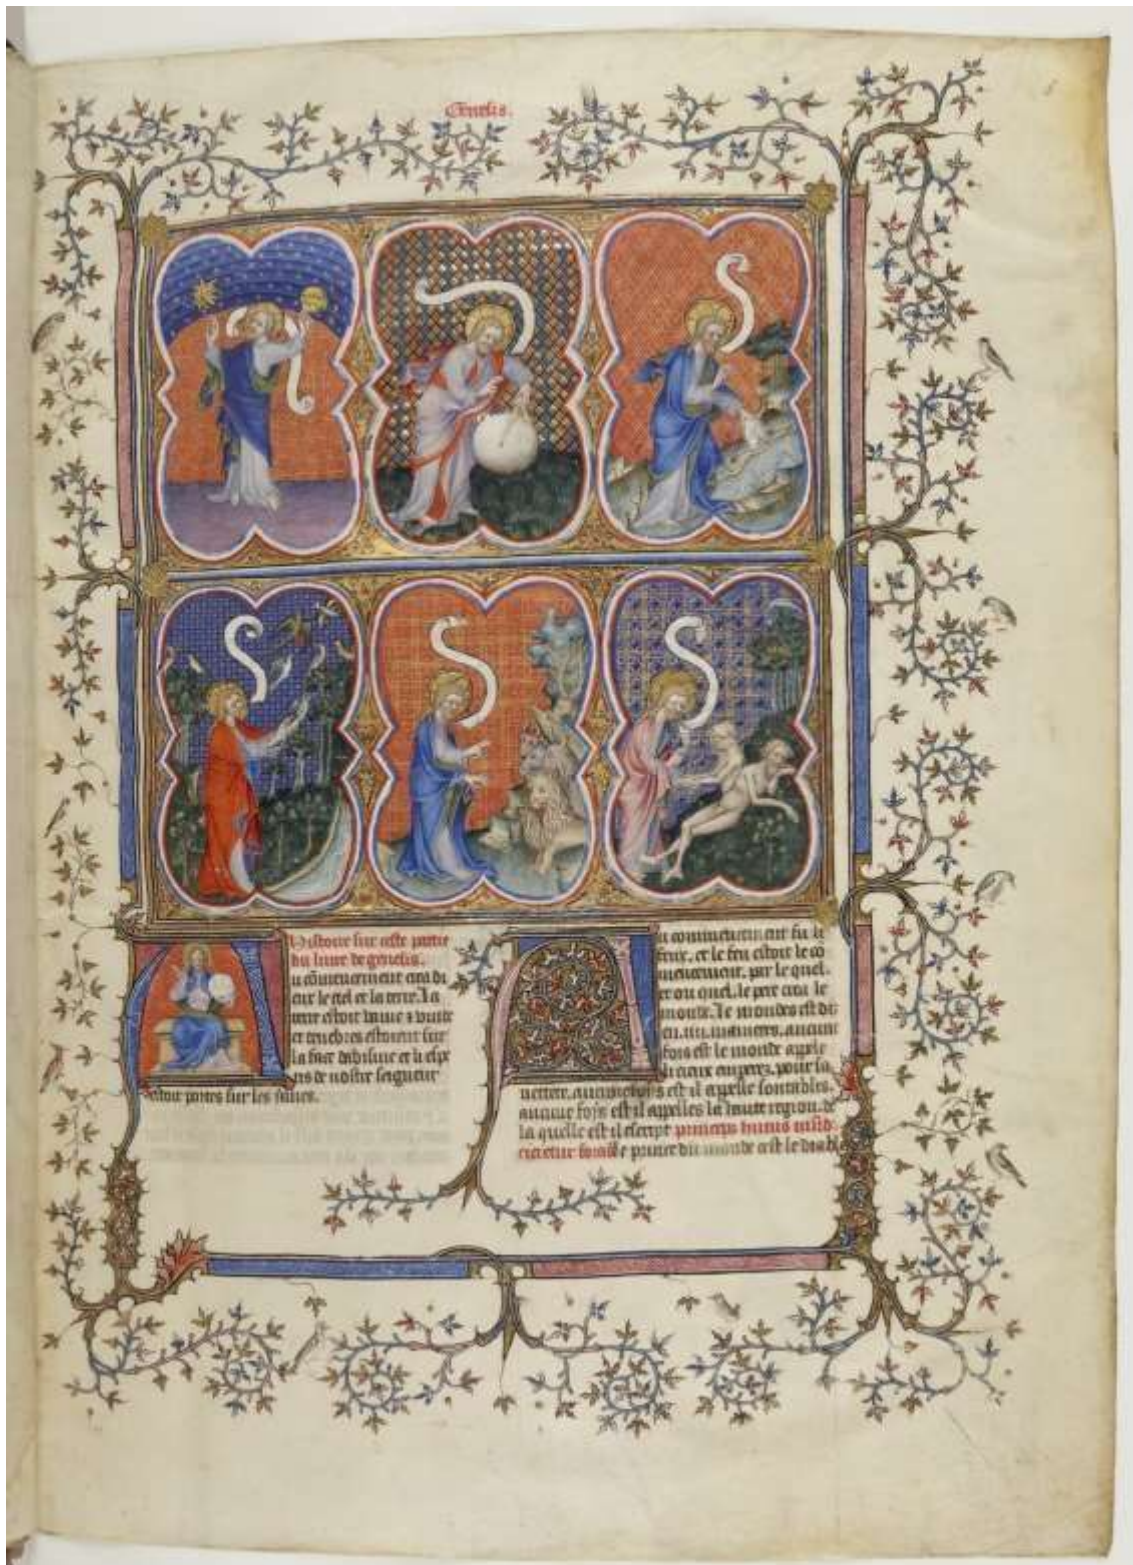 Genesis.
Histoire sur ceste partie
du liure de genesis.
u cōmencement crea di
eux le ciel et la terre. la
terre estoit vaine ⁊ vuide
et tenebres estoient sur
la face dabisme et li esp
is de nostre seigneur
estoit portes sur les
u commencement fu li
feux. et le feu estoit le cō
mencement. par le quel.
et ou quel. le pere crea le
monde. Le mondes est dit
en .iiii. manieres. aucune
fois est le monde appele
li cieux empers. pour sa
nettete. aucune foys est il appelle sontables.
aucune foys est il appelles la haute region. de
la quelle est il escript princeps huius mūd
eicietur foras le prince du monde cest le deabl